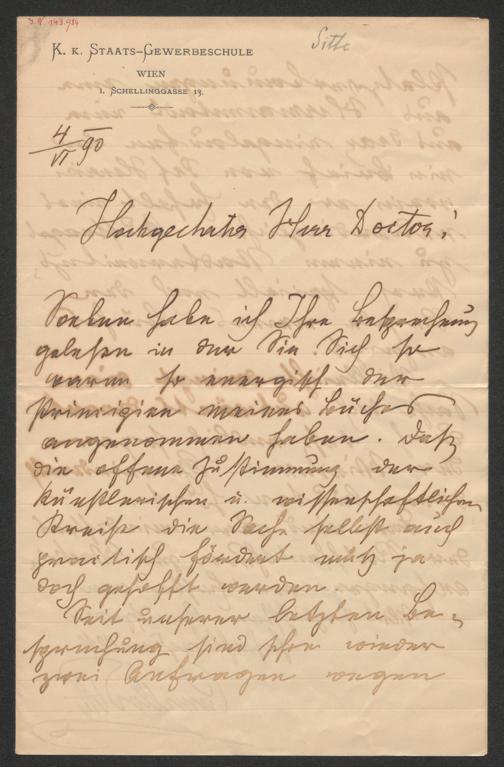 I.N. 143.984
Sitte
K. K. STAATS-GEWERBESCHULE
WIEN
I. SCHELLINGGASSE 13.
4/VI 90
Hochgeehrter Herr Doctor!
Soeben habe ich Ihre Besprechung
gelesen in der Sie Sich so
warm so energisch der
Prinzipien meines Buches
angenommen haben. Daß
die offene Zustimmung der
künstlerischen u. wissenschaftlichen
Kreise die Sache selbst auch
practisch fördert muß ja
doch gehofft werden.
Seit unserer letzten Be-
sprechung sind schon wieder
zwei Anfragen wegen